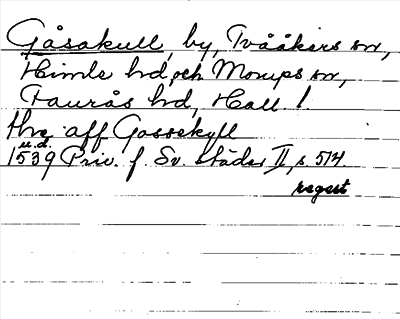 Gåsakull, by, Tvååkers sn,
Himle hd, och Morups sn,
Faurås hd, Hall. l.
Thre aff Gassekyll
u.d.
1539 Priv. f. Sv. städer II, s. 514
regest